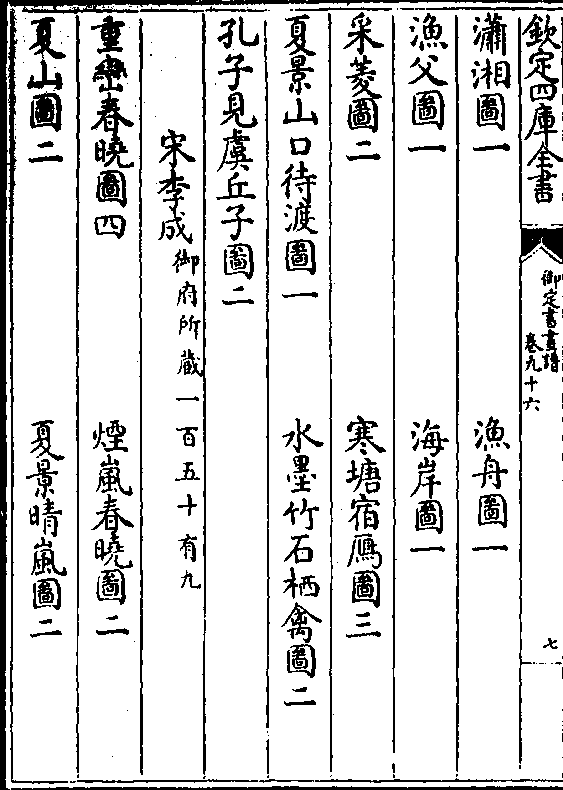 欽定四庫全書
御定書畫譜
卷九十六
七
瀟湘圖一 漁舟圖一
漁父圖一 海岸圖一
采菱圖二 寒塘宿鴈圖三
夏景山口待渡圖一 水墨竹石栖禽圖二
孔子見虞丘子圖二
宋李成御府所藏一百五十有九
重巒春曉圖四 煙嵐春曉圖二
夏山圖二 夏景晴嵐圖二